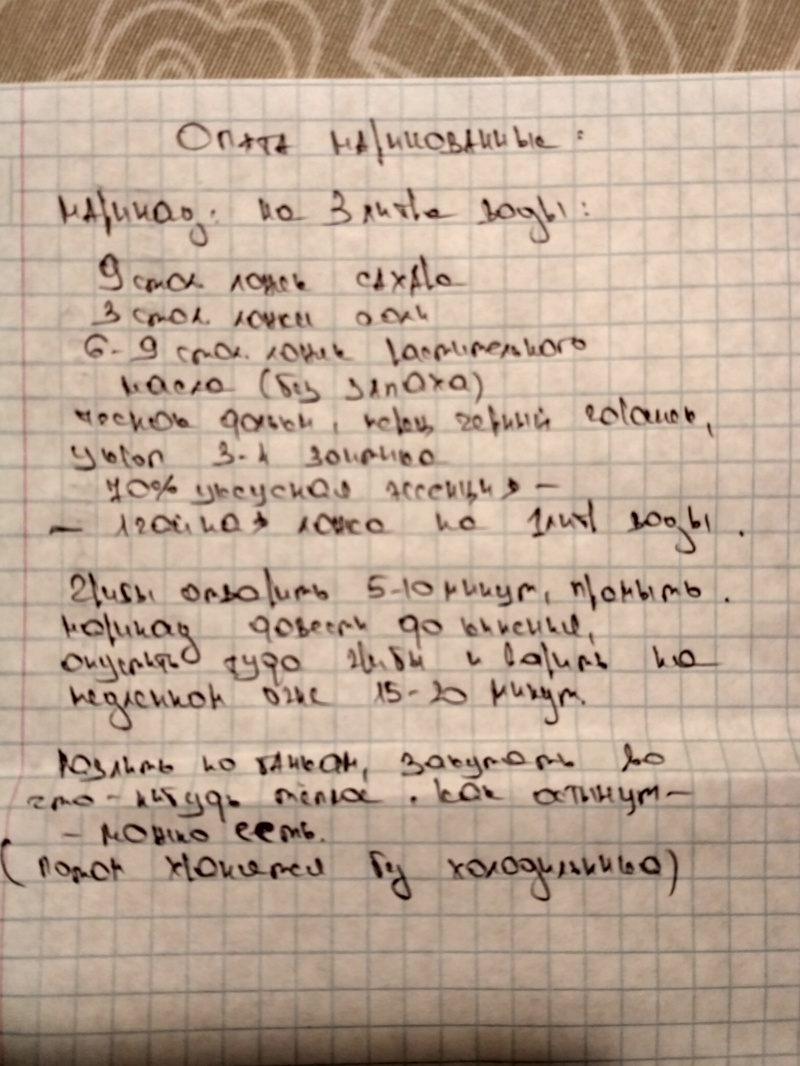 Опята маринованные:
Маринад: на 3 литра воды:
9 стол. ложек сахара
3 стол. ложки соли
6-9 стол. ложек растительного
масла (без запаха)
чеснок дольки, перец черный горошек,
укроп 3-4 зонтика
70% уксусная эссенция —
— 1 чайная ложка на 1 литр воды.
Грибы отварить 5-10 минут, промыть.
маринад довести до кипения,
опустить туда грибы и варить на
медленном огне 15-20 минут.
Разлить по банкам, закутать во
что-нибудь тёплое. Как остынут —
— можно есть.
(потом хранятся без холодильника)